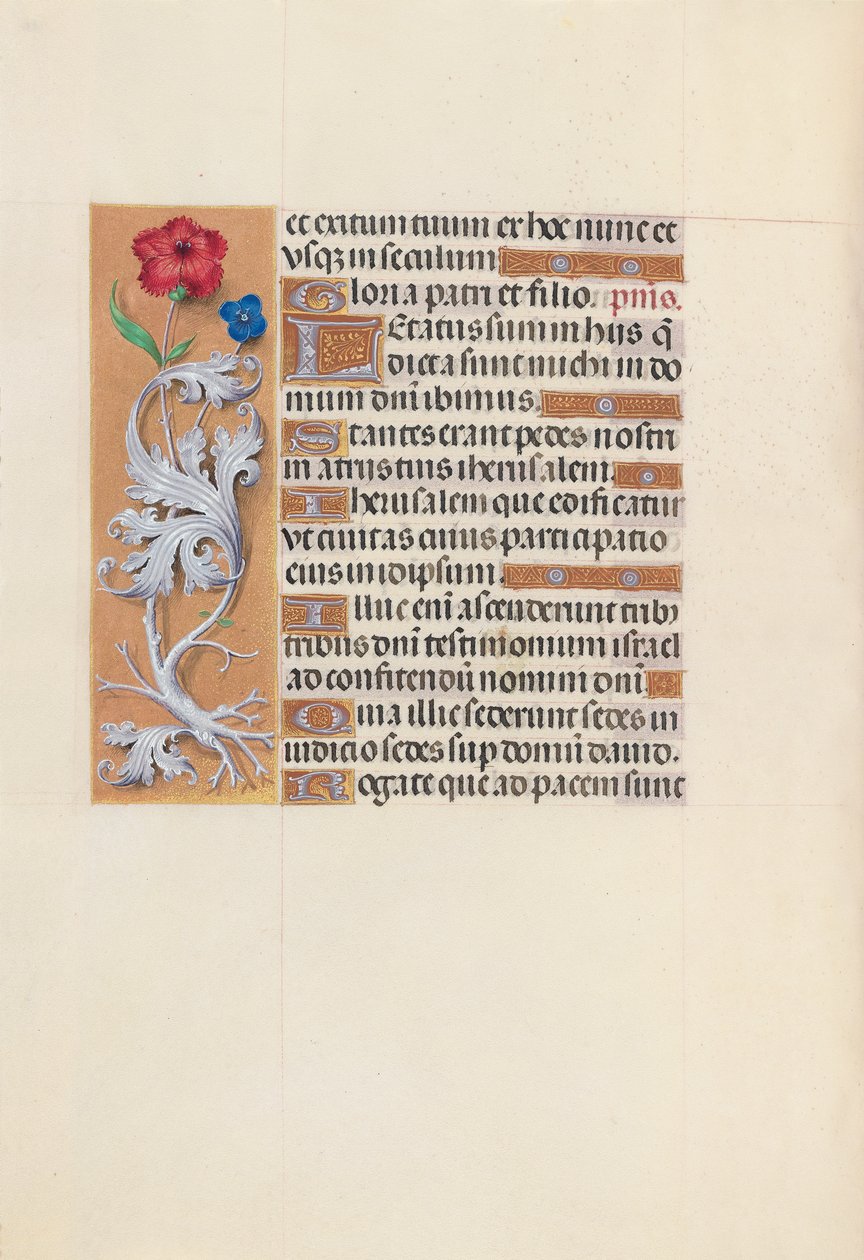 et exitum tuum ex hoc nunc et
vsqꝫ in seculum
Gloria patri et filio. pm̄s.
Letatus sum in hiis q̄
dicta sunt michi in do
mum dn̄i ibimus.
Stantes erant pedes nostri
in atriis tuis iherusalem.
Iherusalem que edificatur
vt ciuitas cuius participatio
eius in idipsum.
Illuc eni᷈ ascenderunt tribꝰ
tribus dn̄i testimonium israel
ad confitendū nomini dn̄i.
Quia illic sederunt sedes in
iudicio sedes sup domū dauid.
Rogate que ad pacem sunt